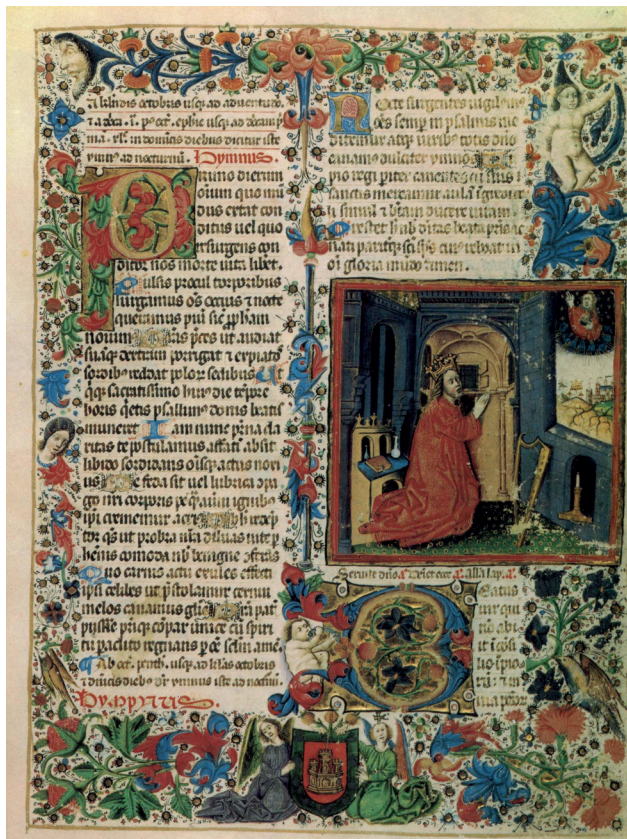 kalendis octobris usq ad aduentū dñi
ma. in dominicis diebus dicitur iste
ymnus ad nocturnū. Hymnus.
Primo dierum
oīum quo mū
dus extat con
ditus uel quo
resurgens con
ditor nos morte uicta liber.
Pulsis procul torporibus
surgamus oēs ocius & nocte
queramus piū sic pphetam
nouimus Nostras pces ut audiat
suāq dexteram porrigat & expiatos
sordibus reddat polorū sedibus Ut
qiq sacratissimo huius diei tēpore
horis qietis psallimus donis beatis
muneret Iam nunc pr̄na cla
ritas te postulamus affatī absit
libido sordidans oīsq actus noxi
us Ne feda sit uel lubrica cōpa
go nr̄i corporis p quā auerni ignibus
ipi crememur acrius Ob h redēp
tor qs ut probra nr̄a diluas uite p
hēnis comoda nb benigne cōferas
Quo carnis actu exules effecti
ipi celibes ut pstolamur cernui
melos canamus glie Presta pat
pijsse prīq cōpar unice cū spirī
tu paclito regnans p oē sclm amē.
Ab oct. penth. usq ad klās octobris
& dīnicis dieb dr ymnus iste ad noctūrnū.
Hympnus.
Nocte surgentes uigilemus
oēs semp in psalmis me
ditemur atq uiribus totis dño
canamus dulciter ymnos Ut
pio regi pariter canentes cū suis
sanctis mereamur aulā īgredi ce
li simul & btām ducere uitam
Prestet h nb ditas beata pris ac
nati pariterq sci sps cuius reboat in
oī gloria mundo amen.
Beatus
uir qui
nō abi
it ī cōsi
lio īpio
rū & in